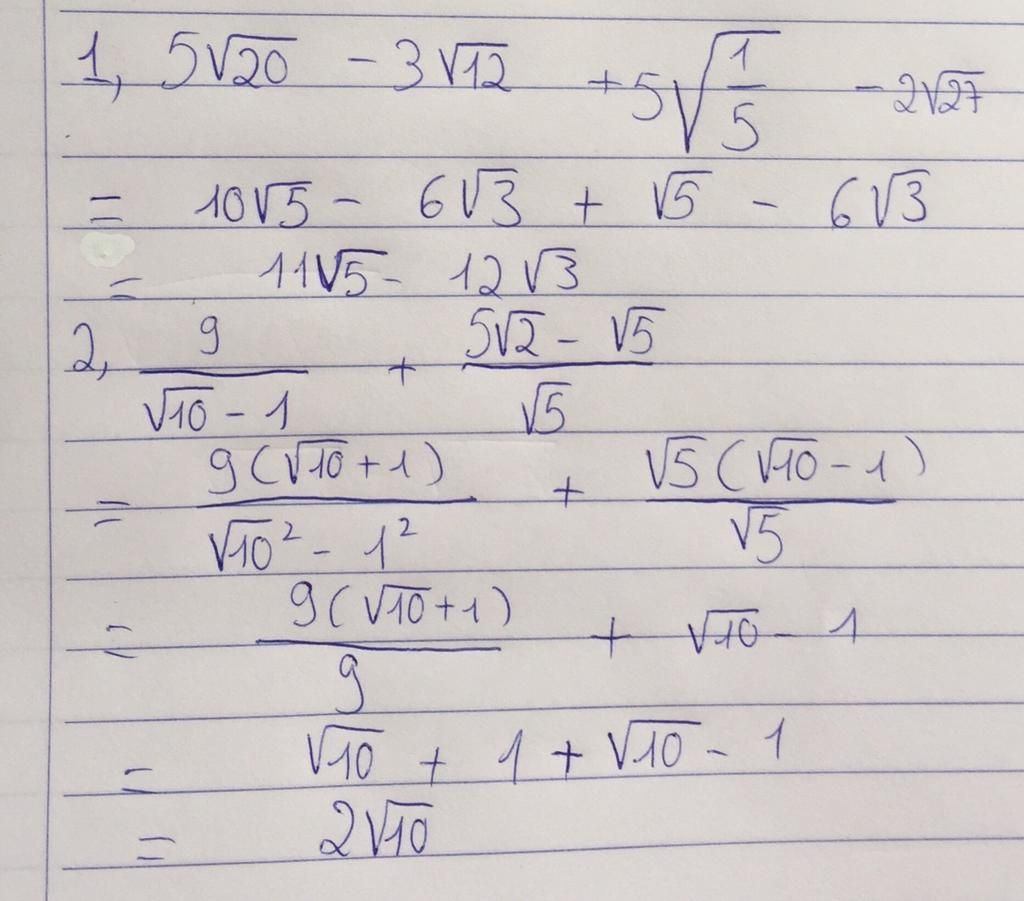 1, 5√20 - 3√12 + 5√(1/5) - 2√27
= 10√5 - 6√3 + √5 - 6√3
= 11√5 - 12√3
2, 9/(√10 - 1) + (5√2 - √5)/√5
= 9(√10 + 1)/(√10² - 1²) + √5(√10 - 1)/√5
= 9(√10 + 1)/9 + √10 - 1
= √10 + 1 + √10 - 1
= 2√10